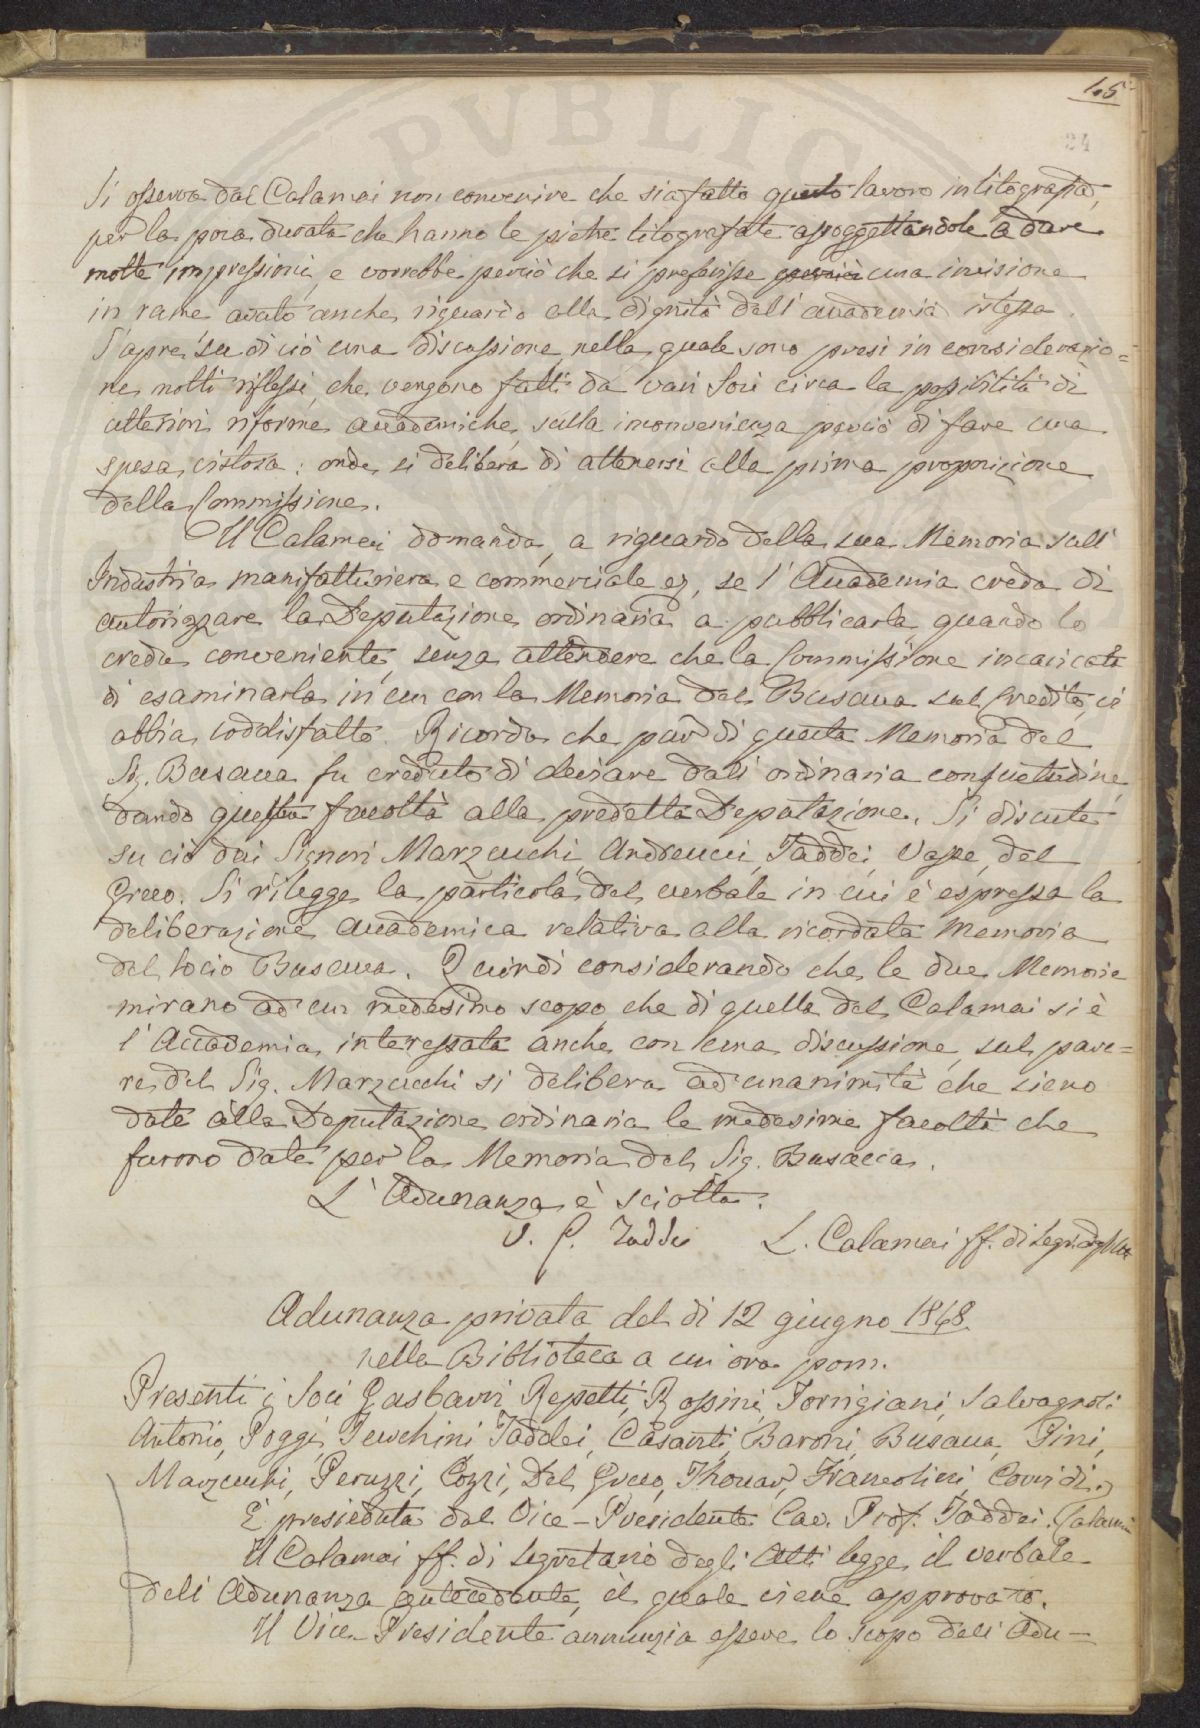 45
24
Si osserva dal Calamai non convenire che sia fatto questo lavoro in litografia,
per la poca durata che hanno le pietre litografate assoggettandole a dare
molte impressioni, e vorrebbe perciò che si preferisse una incisione
in rame avuto anche riguardo alla dignità dell'accademia istessa.
S'apre su di ciò una discussione nella quale sono presi in considerazio=
ne molti riflessi che vengono fatti da vari Soci circa la possibilità di
ulteriori riforme accademiche, sulla inconvenienza perciò di fare una
spesa vistosa: onde si delibera di attenersi alla prima proposizione
della Commissione.
Il Calamai domanda, a riguardo della sua Memoria sull'
Industria manifatturiera e commerciale, se l'Accademia creda di
autorizzare la Deputazione ordinaria a pubblicarla quando lo
creda conveniente, senza attendere che la Commissione incaricata
di esaminarla in un con la Memoria del Busacca sul Credito, ci
abbia soddisfatto. Ricorda che pur di questa Memoria del
Sig. Busacca fu creduto di deviare dall'ordinaria consuetudine
dando questa facoltà alla predetta Deputazione. Si discute
su ciò dai Signori Marzucchi, Andreucci, Taddei, Vaso, del
Greco. Si rilegge la particola del verbale in cui è espressa la
deliberazione accademica relativa alla ricordata Memoria
del Socio Busacca. Quindi considerando che le due Memorie
mirano ad un medesimo scopo, che di quella del Calamai si è
l'Accademia interessata anche con una discussione, sul pare=
re del Sig. Marzucchi si delibera ad unanimità che sieno
date alla Deputazione ordinaria le medesime facoltà che
furono date per la Memoria del Sig. Busacca.
L'Adunanza è sciolta.
V. P. Taddei L. Calamai ff. di Segr. degli Atti
Adunanza privata del dì 12 giugno 1848
nella Biblioteca a un'ora pom.
Presenti i Soci Gasbarri, Repetti, Rossini, Fornigiani, Salvagnoli
Antonio, Poggi, Tecchini, Taddei, Casanti, Baroni, Busacca, Pini,
Marzucchi, Peruzzi, Cozzi, Del Greco, Thouar, Francolini, Corridi,
È presieduta dal Vice-Presidente Cav. Prof. Taddei. Calamai
Il Calamai ff. di Segretario degli Atti legge il verbale
dell'Adunanza antecedente, il quale viene approvato.
Il Vice-Presidente annunzia essere lo scopo dell'Adu-